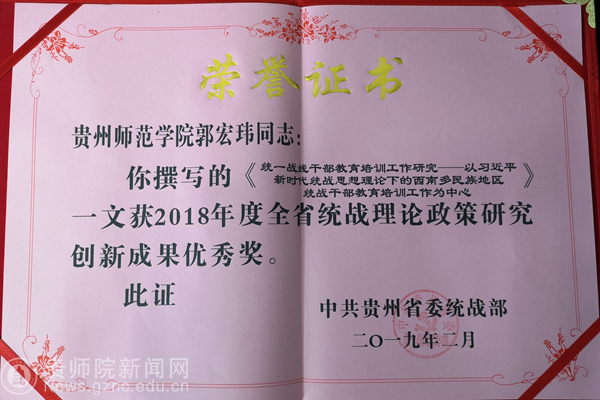 荣誉证书
贵州师范学院郭宏玮同志：
你撰写的《统一战线干部教育培训工作研究——以习近平
新时代统战思想理论下的西南多民族地区
统战干部教育培训工作为中心》
一文获2018年度全省统战理论政策研究
创新成果优秀奖。
此证
中共贵州省委统战部
二〇一九年二月
贵师院新闻网
news.gznc.edu.cn